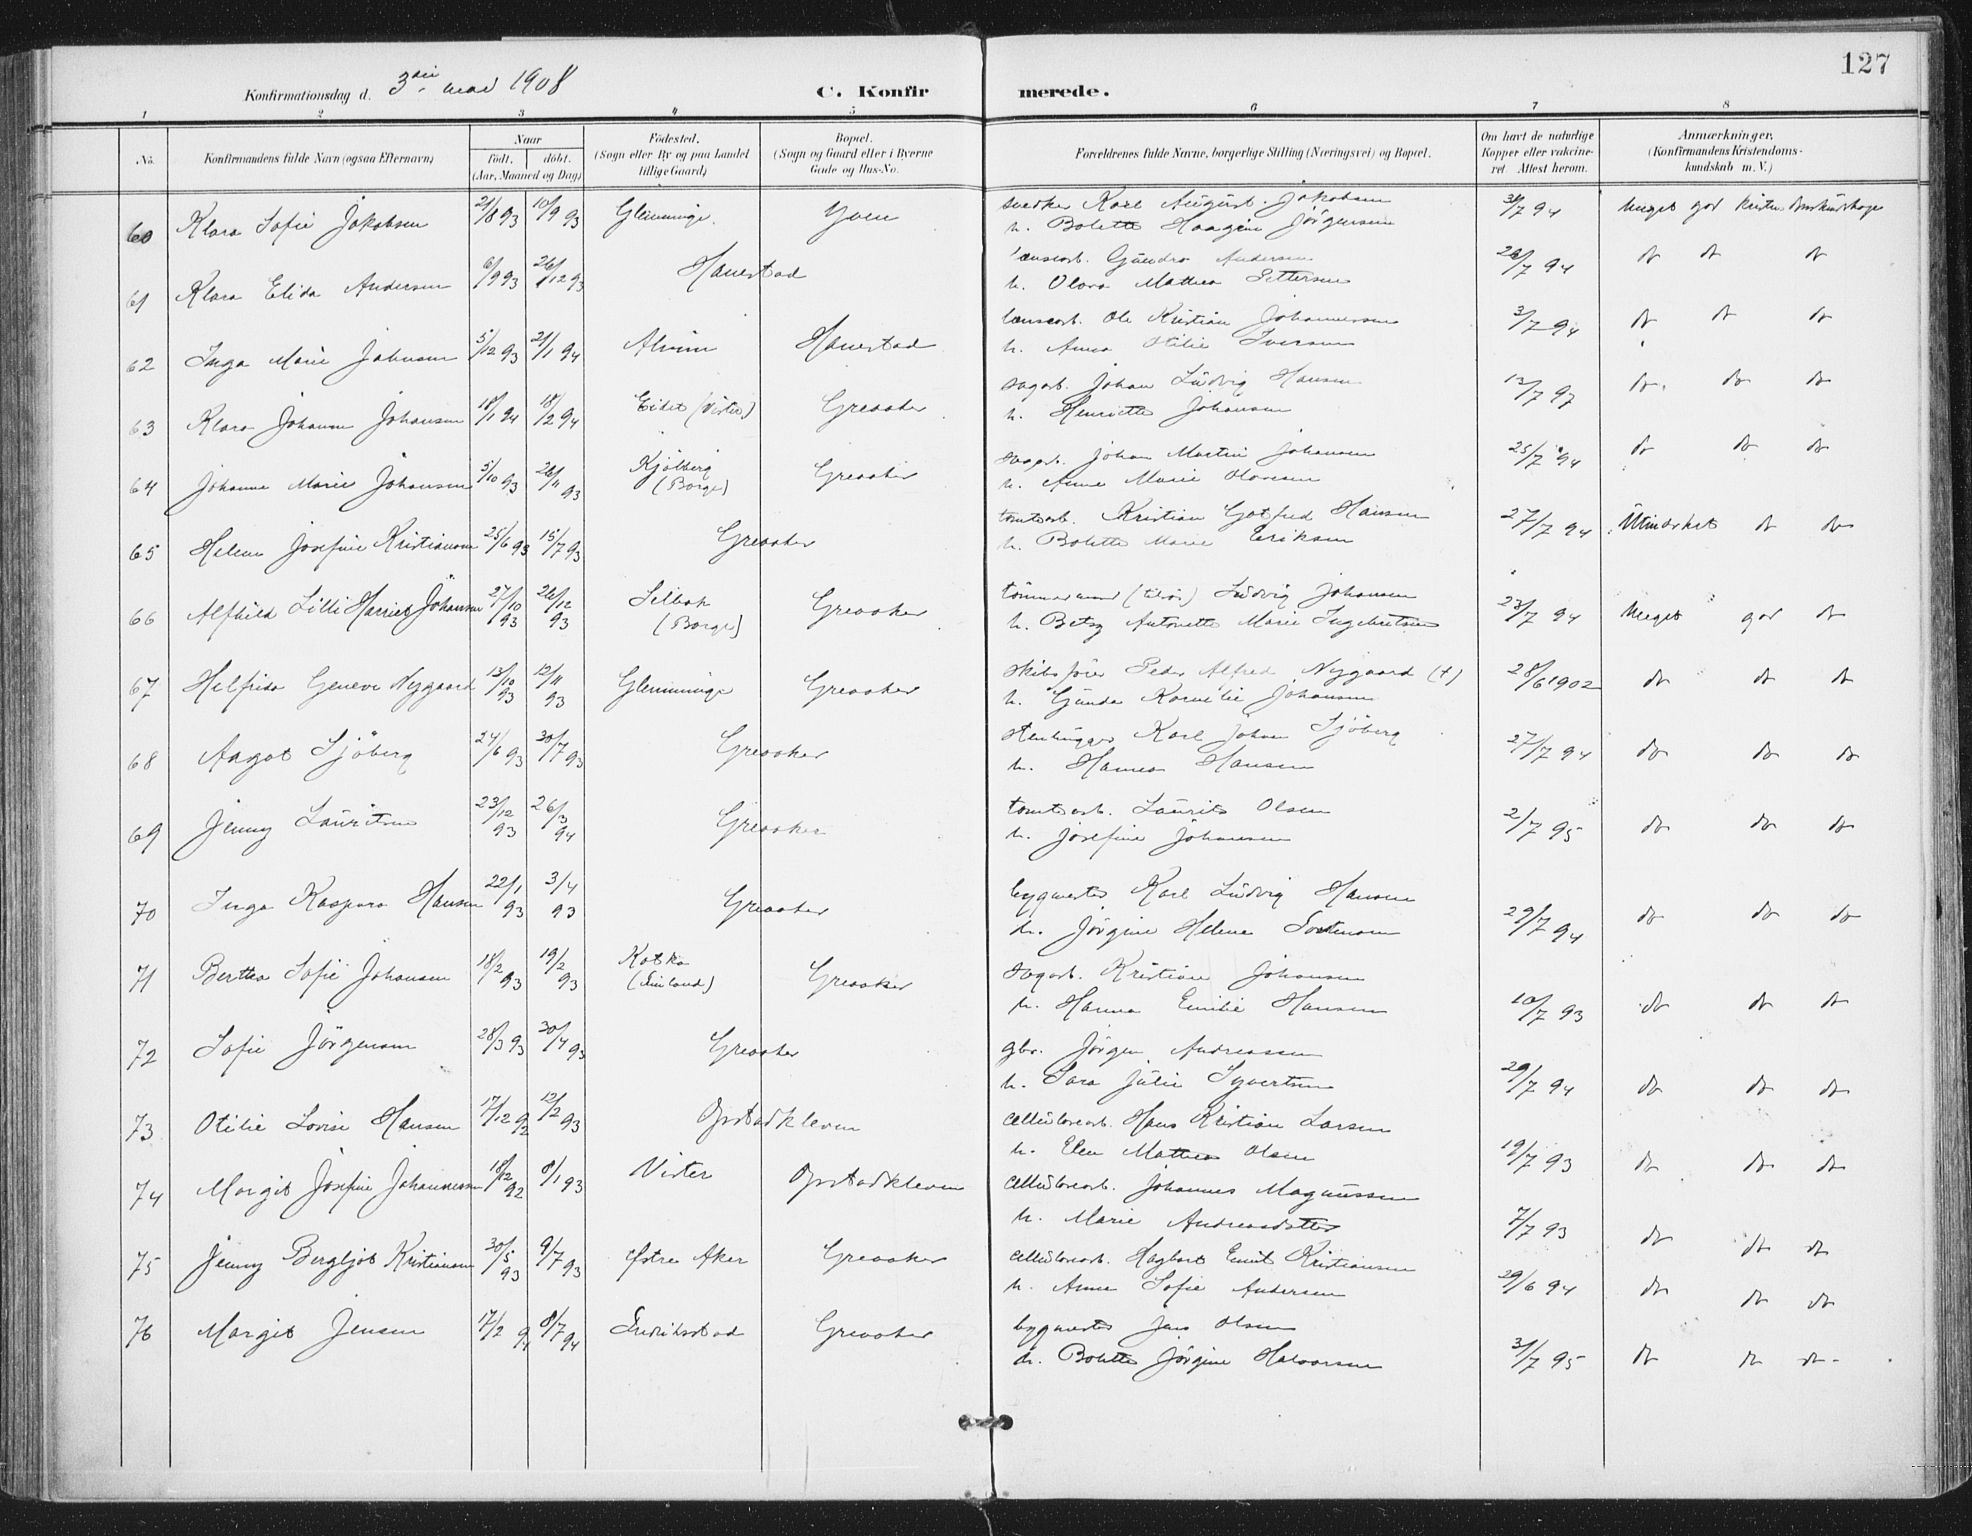 127
Konfirmationsdag d. 3die mai 1908 C. Konfirmerede.
1 2 3 4 5 6 7 8
No. Konfirmandens fulde Navn (ogsaa Efternavn) Naar født. døbt. (Aar, Maaned og Dag) Fødested. (Sogn eller By og paa Landet tillige Gaard) Bopæl. (Sogn og Gaard eller i Byerne Gade og Hus-No. Forældrenes fulde Navne, borgerlige Stilling (Næringsvei) og Bopæl. Om havt de naturlige Kopper eller vakcineret. Attest herom. Anmærkninger. (Konfirmandens Kristendomskundskab m. V.)
60 Klara Sofie Jakobsen 21/8 93 10/9 93 Glemminge Yven Karl August Jakobsen 30/7 94 Meget god kristendomskundskap
h. Bolette Haagine Jörgensen
61 Klara Elida Andersen 6/9 93 26/12 93 Hauestad lænsearb. Gundro Andersen 26/7 94 do do do
h. Olava Mathea Pettersen
62 Inga Marie Johansen 5/12 93 21/1 94 Alvim Hauestad lænsearb. Ole Kristian Johannessen 3/7 94 do do do
h. Anna Otilie Iversen
63 Klara Johanne Johansen 18/1 94 18/2 94 Eidet (Vister) Greaaker sagarb. Johan Ludvig Hansen 13/7 97 do. do do
h. Henriette Johansen
64 Johanne Marie Johansen 5/10 93 26/11 93 Kjölberg (Borge) Greaaker sagarb. Johan Martin Johansen 25/7 94 do do do
h. Anne Marie Olavesen
65 Helene Josefine Kristiansen 25/6 93 15/7 93 Greaaker tomtearb. Kristian Gotfred Hansen 27/7 94 Utmærket do do
h. Bolette Marie Eriksen
66 Alfhild Lilli Harriet Johansen 27/10 93 26/12 93 Selbak (Borge) Greaaker tömmermand Ludvig Johansen 23/7 94 Meget god do
h. Betzy Antonette Marie Ingebretsen
67 Helfrida Geneve Nygaard 13/10 93 12/11 93 Glemminge Greaaker skibsförer Peder Alfred Nygaard (+) 28/6 1902 do do do
h. Gunda Kornelie Johansen
68 Aagot Sjöberg 24/6 93 30/7 93 Greaaker stenhugger Karl Johan Sjöberg 27/7 94 do do do
h. Hanna Hansen
69 Jenny Lauritsen 23/12 93 26/3 94 Greaaker tomtearb. Laurits Olsen 2/7 95 do do do
h. Josefine Johansen
70 Inga Kaspara Hansen 22/1 93 3/4 93 Greaaker bygmester Karl Ludvig Hansen 29/7 94 do do do
h. Jörgine Helene Sorensen
71 Berthea Sofie Johansen 18/2 93 19/2 93 Kotka (Finland) Greaaker sagarb. Kristian Johansen 10/7 93 do do do
h. Hanna Emilie Hansen
72 Sofie Jörgensen 28/3 93 30/4 93 Greaaker gbr. Jörgen Andreassen 29/7 94 do do do
h. Sara Julie Syvertsen
73 Otilie Lovise Hansen 17/12 92 12/2 93 Opstadkleven cellulosearb. Hans Kristian Larsen 19/7 93 do do do
h. Elen Mathea Olsen
74 Margit Josefine Johannessen 18/12 92 8/1 93 Vister Opstadkleven cellulosearb. Johannes Magnussen 7/7 93 do do do
h. Marie Andreasdatter
75 Jenny Bergljot Kristiansen 30/5 93 9/7 93 Østre Aker Greaaker cellulosearb. Hagbart Emil Kristiansen 29/6 94 do do do
h. Anne Sofie Andersen
76 Margit Jensen 17/2 94 8/7 94 Fredriksstad Greaaker bygmester Jens Olsen 3/7 95 do do do
h. Bolette Jörgine Halvorsen